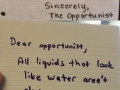 Sincerely,
The Opportunist
Dear opportunist,
All liquids that look
like water aren't